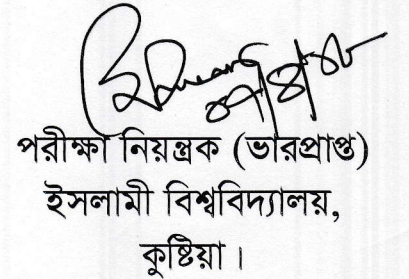 পরীক্ষা নিয়ন্ত্রক (ভারপ্রাপ্ত)
ইসলামী বিশ্ববিদ্যালয়,
কুষ্টিয়া।